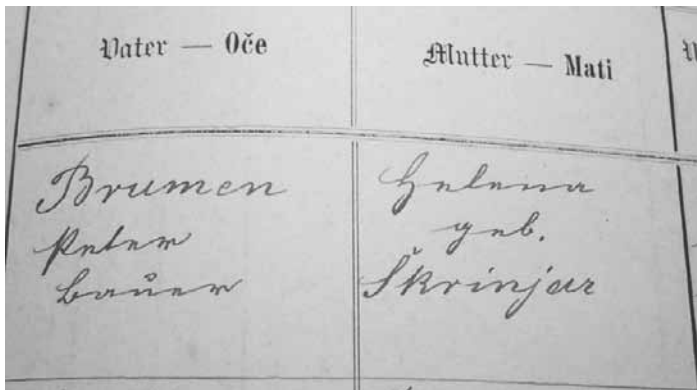 Vater — Oče
Mutter — Mati
Brumen
Peter
Bauer
Helena
geb.
Škrinjar